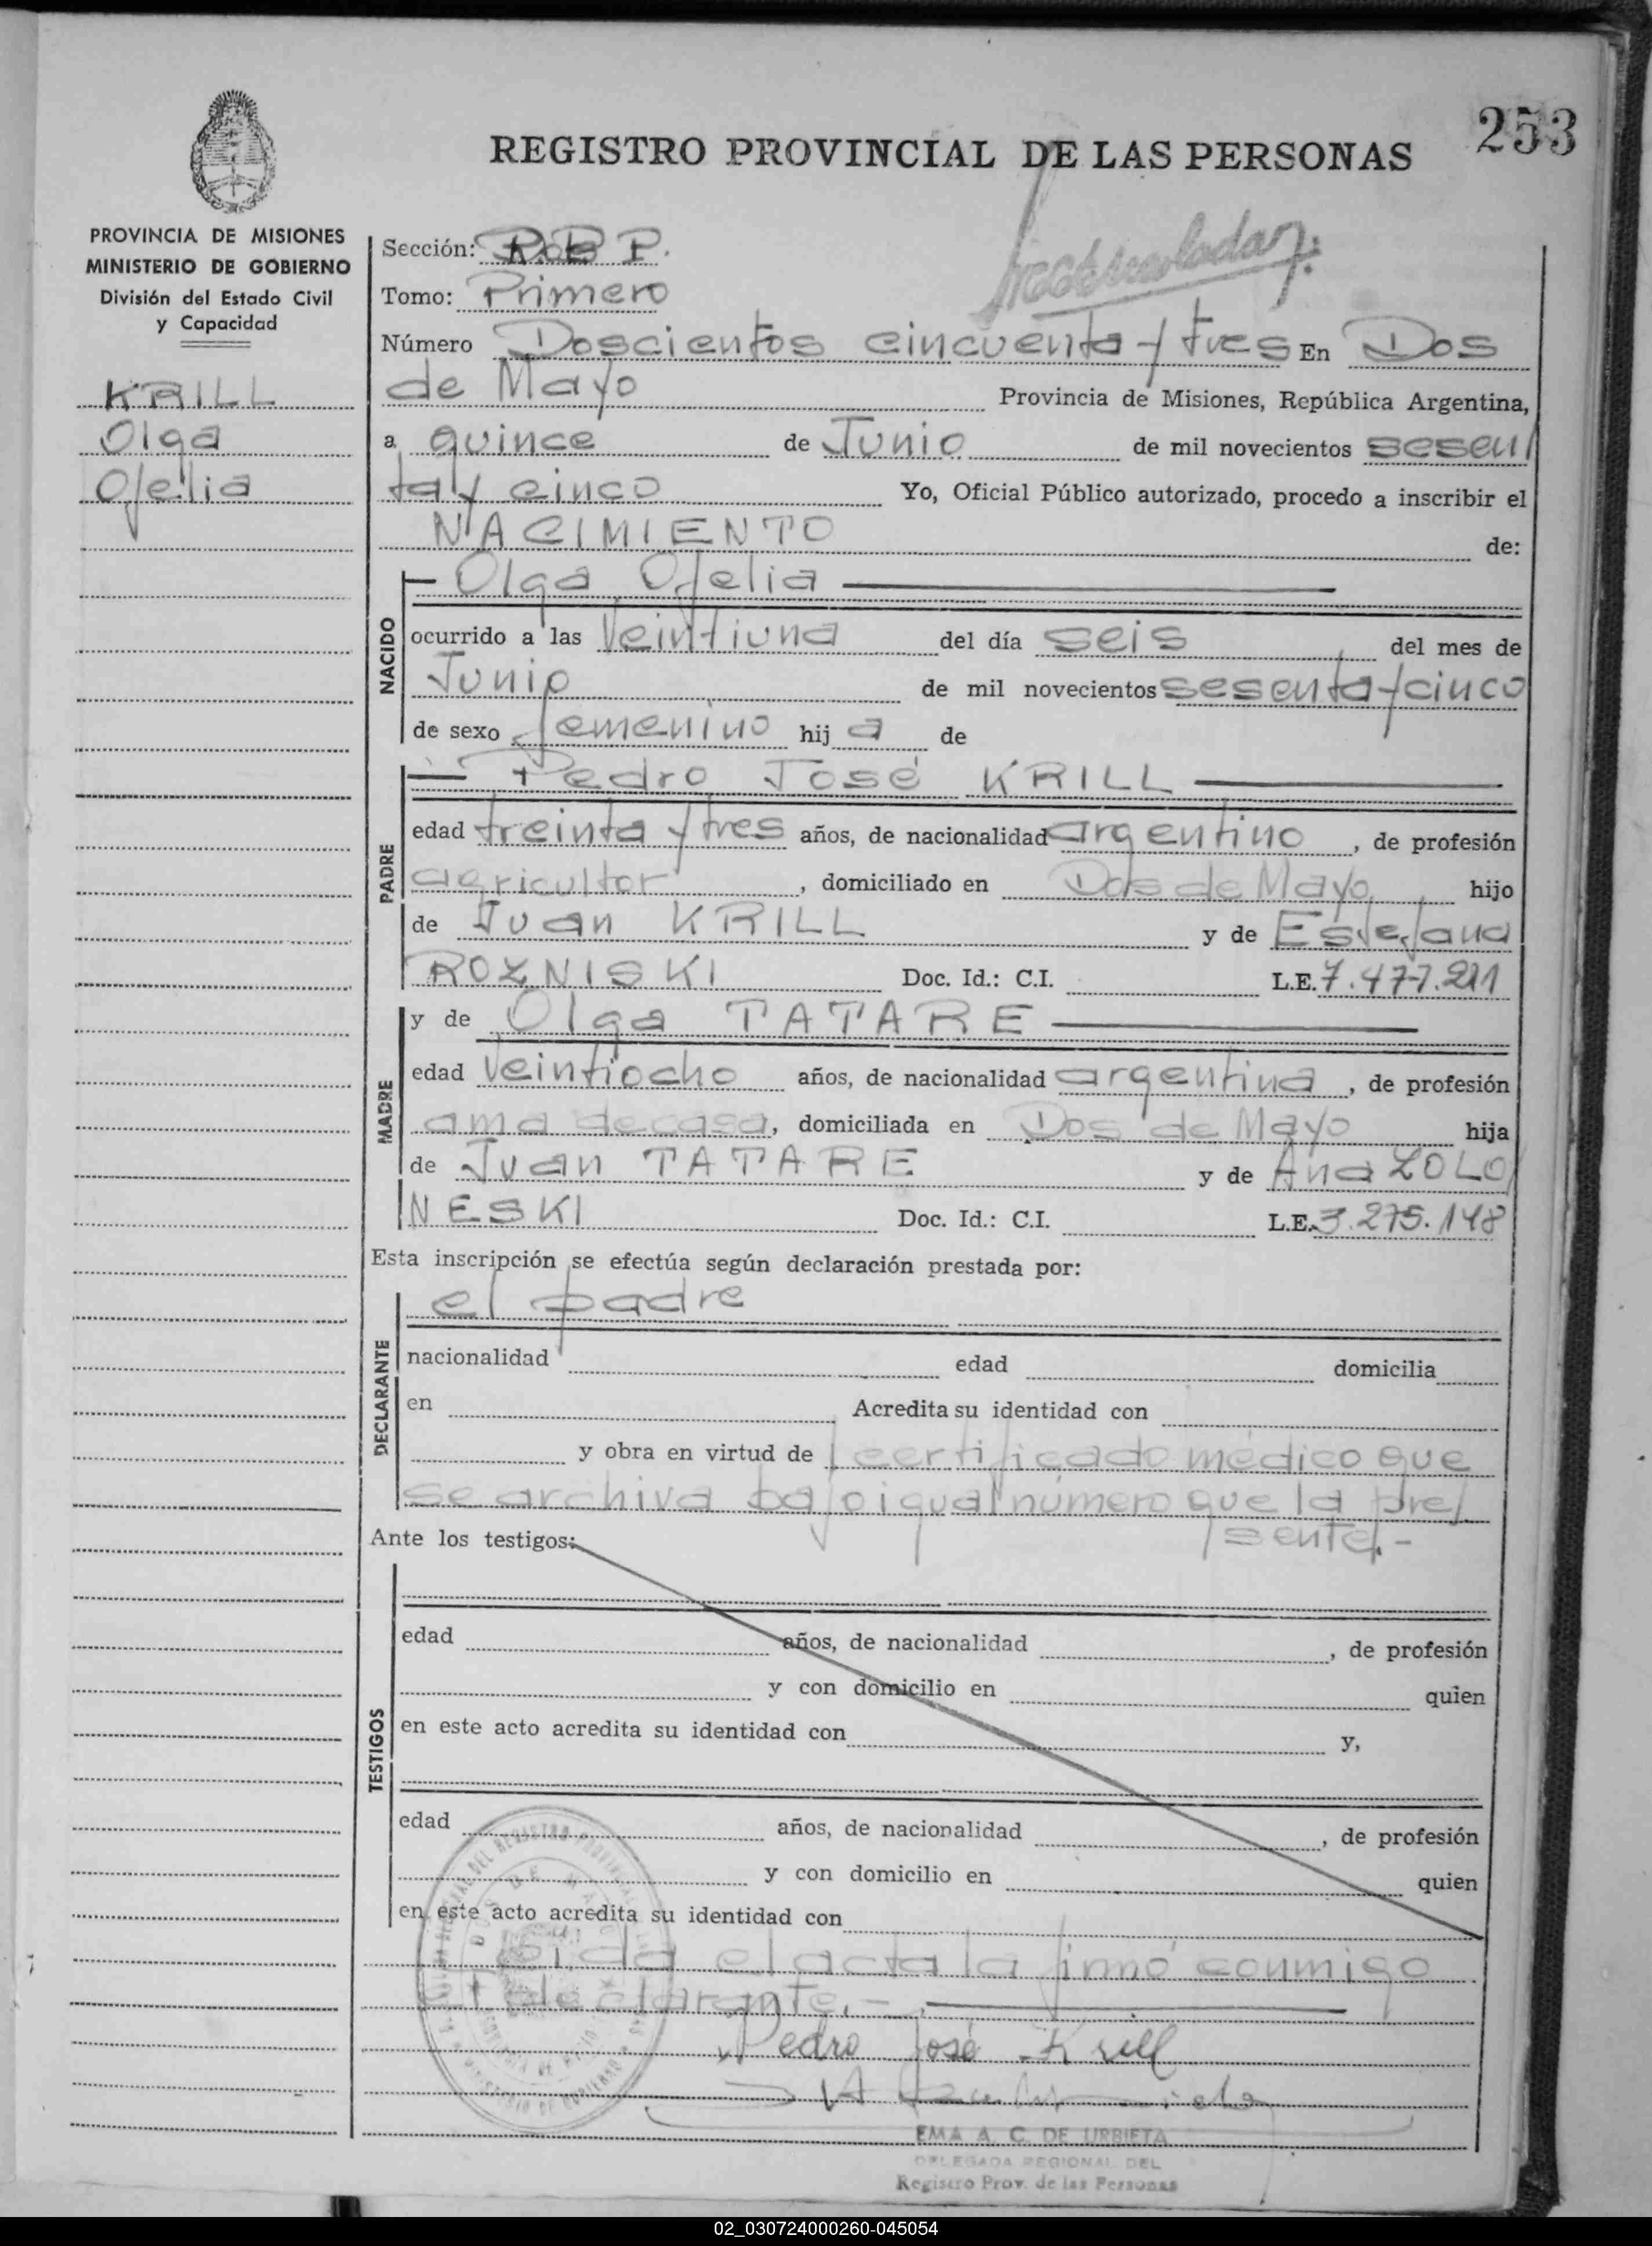 253
REGISTRO PROVINCIAL DE LAS PERSONAS
PROVINCIA DE MISIONES
MINISTERIO DE GOBIERNO
División del Estado Civil
y Capacidad
KRILL
Olga
Ofelia
Sección: P.
Tomo: Primero
Número Doscientos cincuenta y tres En Dos
de Mayo Provincia de Misiones, República Argentina,
a quince de Junio de mil novecientos sesen/
ta y cinco Yo, Oficial Público autorizado, procedo a inscribir el
NACIMIENTO de:
NACIDO
— Olga Ofelia —
ocurrido a las veintiuna del día seis del mes de
Junio de mil novecientos sesenta y cinco
de sexo femenino hij a de
PADRE
— Pedro José KRILL —
edad treinta y tres años, de nacionalidad argentino, de profesión
agricultor, domiciliado en Dos de Mayo hijo
de Juan KRILL y de Estefana
ROZNISKI Doc. Id.: C.I. L.E. 7.477.211
MADRE
y de Olga TATARE —
edad veintiocho años, de nacionalidad argentina, de profesión
ama de casa, domiciliada en Dos de Mayo hija
de Juan TATARE y de Ana ZOLO/
NESKI Doc. Id.: C.I. L.E. 3.275.148
Esta inscripción se efectúa según declaración prestada por:
DECLARANTE
el padre
nacionalidad edad domicilia
en Acredita su identidad con
y obra en virtud de certificado médico que
se archiva bajo igual número que la pre/
/sente.-
Ante los testigos:
TESTIGOS
edad años, de nacionalidad , de profesión
y con domicilio en quien
en este acto acredita su identidad con y,
edad años, de nacionalidad , de profesión
y con domicilio en quien
en este acto acredita su identidad con
Leida el acta la firmó conmigo
el declarante.- —
Pedro José Krill
EMA A. C. DE URBIETA
DELEGADA REGIONAL DEL
Registro Prov. de las Personas
02_030724000260-045054